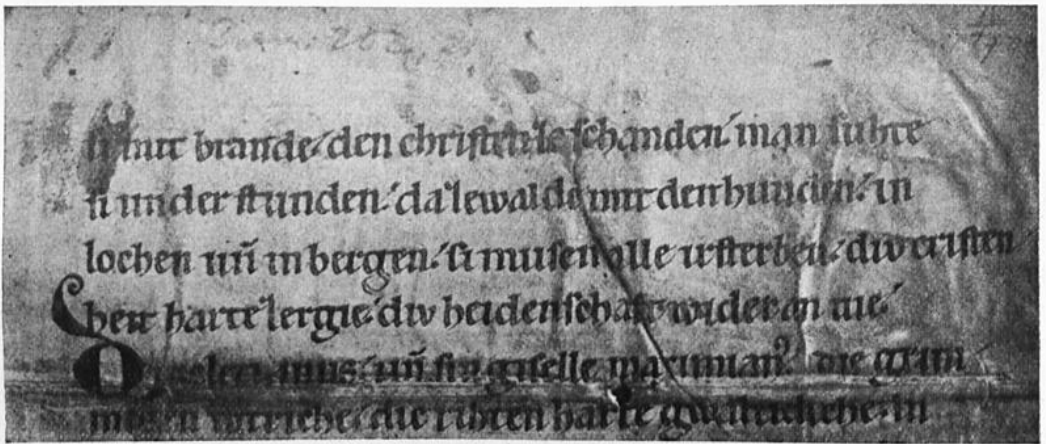 ſi mit brande. den chriſten ze ſchanden. man ſuhte
ſi under ſtunden. da ze walde mit den hunden. in
lochen uñ in bergen. ſi muſen alle irſterben. div criſten
heit harte zergie. div heidenſchaft wider an vie.
uñ ſin gſelle maximian⁹. die grim
wtriche. die rihten harte in